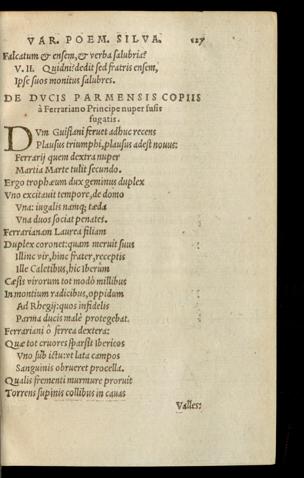 VAR. POEM. SILVA. 127
Falcatum & ensem, & verba salubria?
V. II. Quidni? dedit sed fratris ensem,
Ipse suos monitus salubres.
DE DVCIS PARMENSIS COPIIS
à Ferrariano Principe nuper fusis
fugatis.
DVm Guisiani feruet adhuc recens
Plausus triumphi, plausus adest nouus:
Ferrarij quem dextra nuper
Martia Marte tulit secundo.
Ergo trophæum dux geminus duplex
Vno excitauit tempore, de domo
Vna: iugalis namq; tæda
Vna duos sociat penates.
Ferrarianam Laurea filiam
Duplex coronet: quam meruit suus
Illinc vir, hinc frater, receptis
Ille Caletibus, hic Iberûm
Cæsis virorum tot modò millibus
In montium radicibus, oppidum
Ad Rhegij: quos infidelis
Parma ducis malè protegebat.
Ferrariani ô ferrea dextera:
Quæ tot cruores sparsit Ibericos
Vno sub ictu: vt lata campos
Sanguinis obrueret procella.
Qualis frementi murmure proruit
Torrens supinis collibus in cauas
Valles: